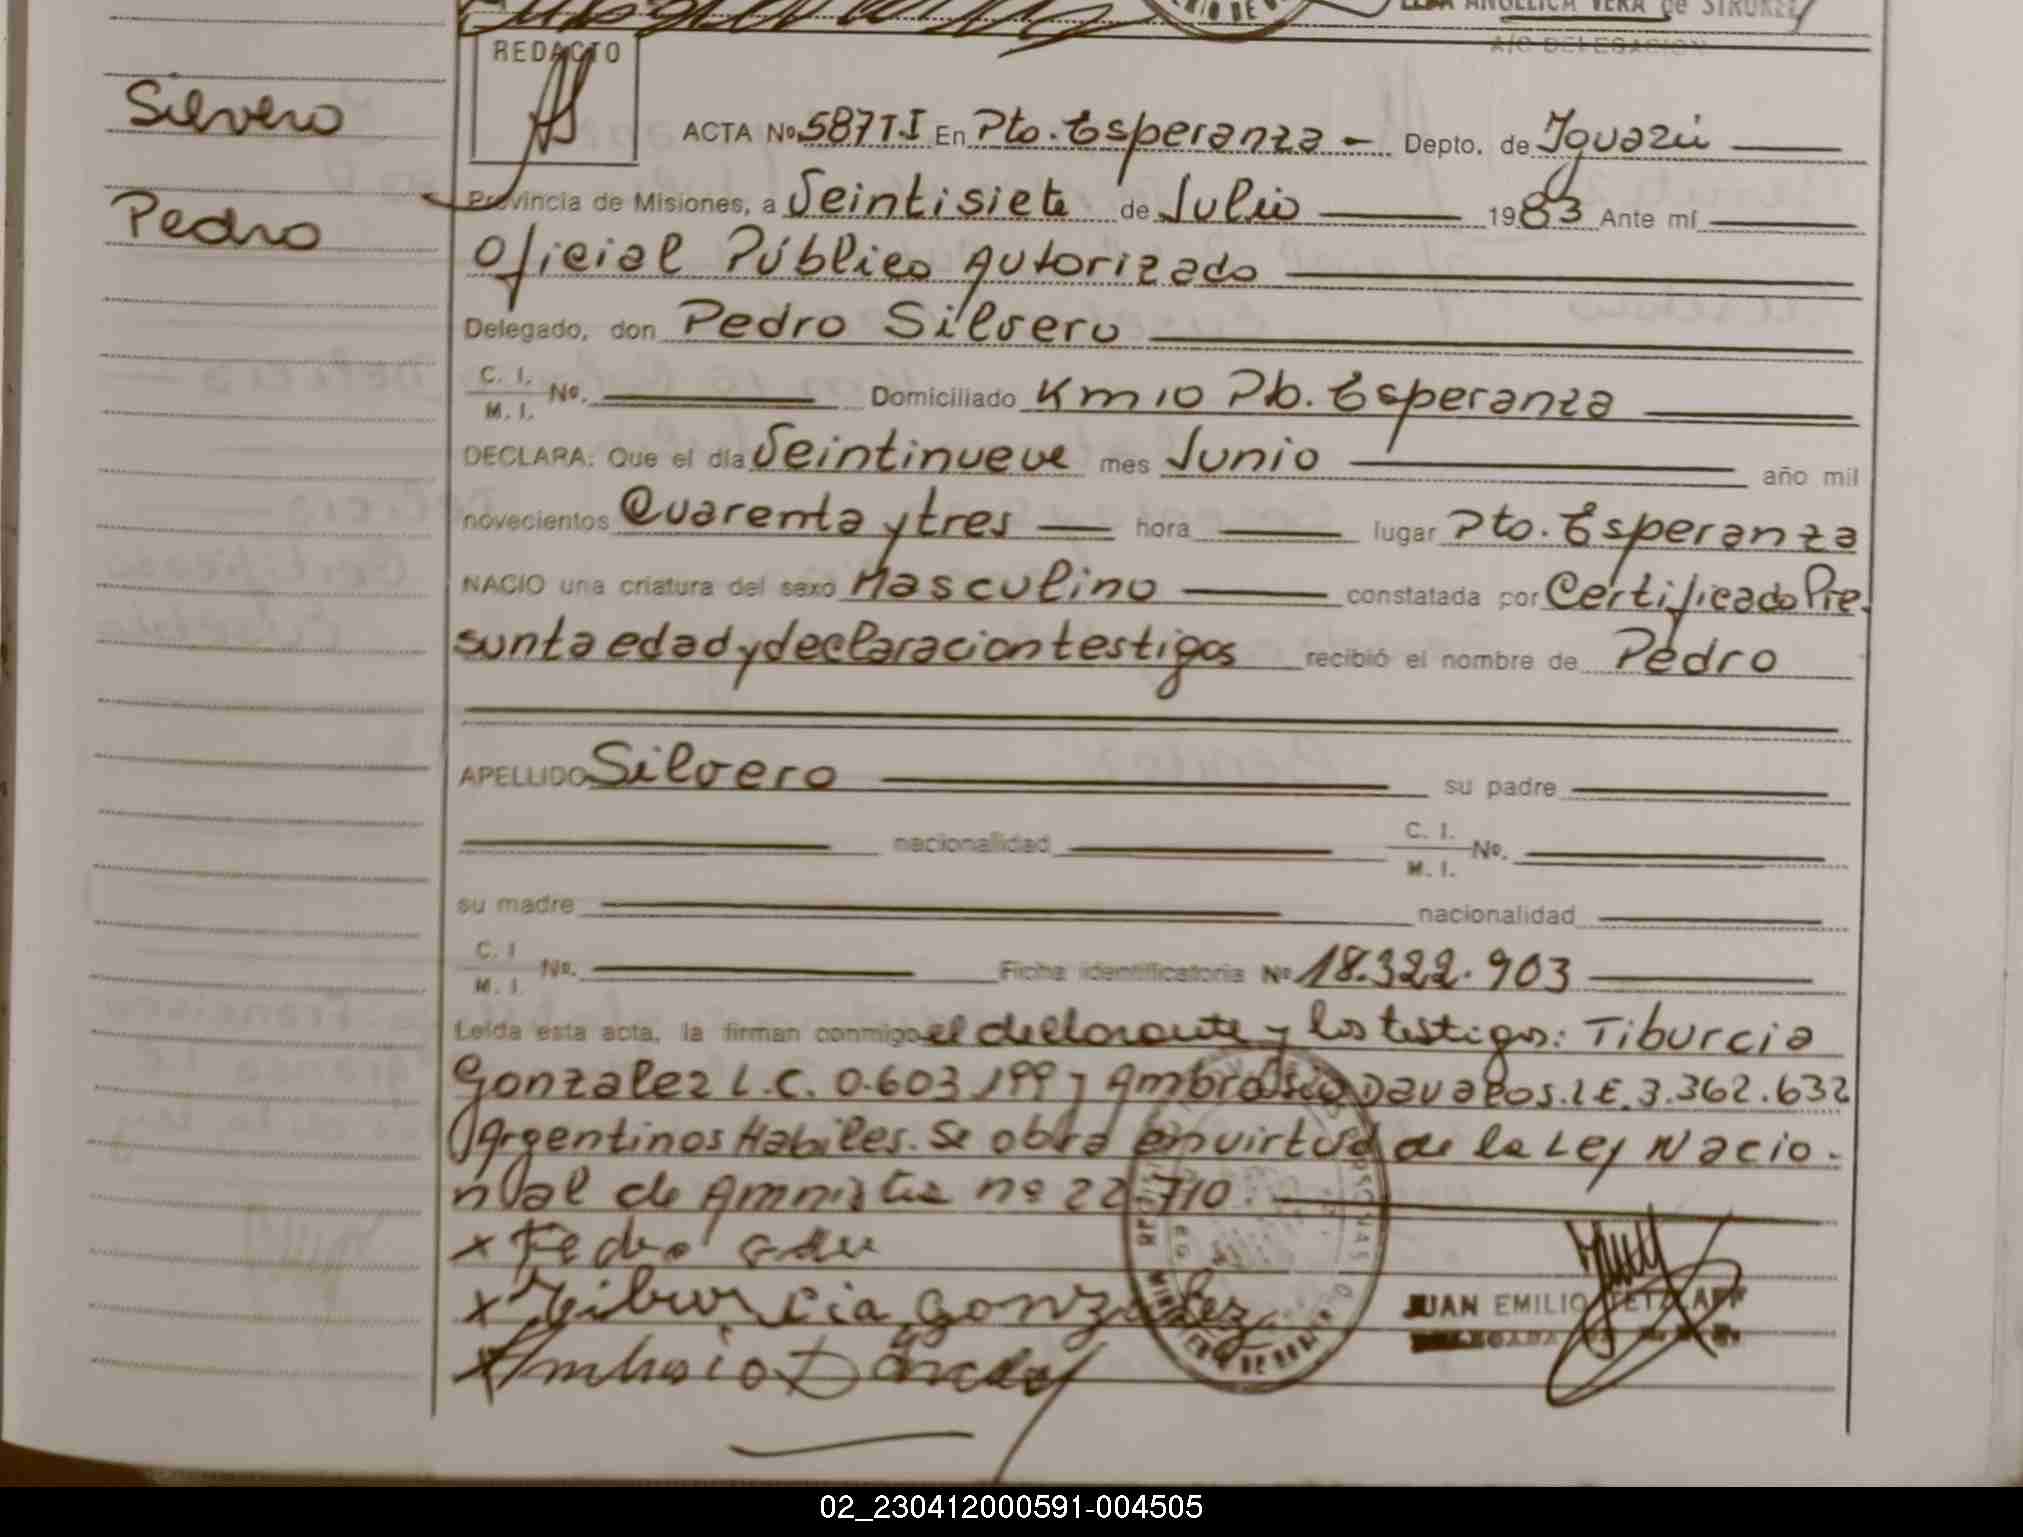 ELBA ANGELICA VERA de STRUKEL
A/C DELEGACION
REDACTO
Silvero
Pedro
ACTA Nº 587 T.I En Pto. Esperanza - Depto. de Iguazú
Provincia de Misiones, a Veintisiete de Julio 1983 Ante mí
Oficial Público Autorizado
Delegado, don Pedro Silvero
C. I. M. I. Nº. Domiciliado Km 10 Pto. Esperanza
DECLARA: Que el día Veintinueve mes Junio año mil
novecientos Cuarenta y tres hora lugar Pto. Esperanza
NACIO una criatura del sexo Masculino constatada por Certificado Pre-
sunta edad y declaracion testigos recibió el nombre de Pedro
APELLIDO Silvero su padre
nacionalidad C. I. M. I. Nº.
su madre nacionalidad
C. I M. I. Nº. Ficha identificatoria Nº 18.322.903
Leída esta acta, la firman conmigo el declarante y los testigos: Tiburcia
Gonzalez L.C. 0.603.199 y Ambrosio Davalos. L.E. 3.362.632
Argentinos Habiles. Se obra en virtud de la Ley Nacio-
nal de Amnistia nº 22.710.
x Pedro
x Tiburcia Gonzalez
x Ambrosio
JUAN EMILIO
02_230412000591-004505